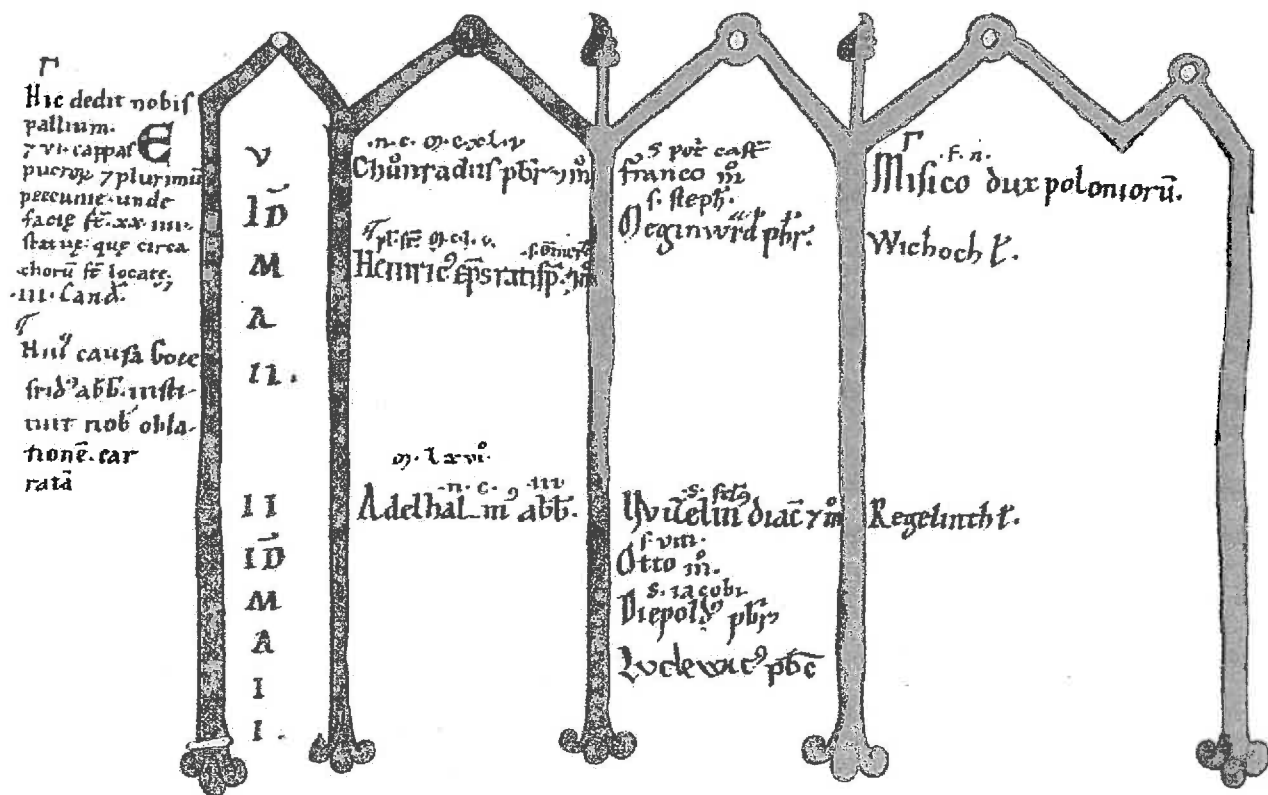 Hic dedit nobis
pallium.
⁊ vi. cappas E
purpº ⁊ plurimū
peccunie. unde
facte st̄. xx. iiii.
statuę. quę circa
chorū st̄ locatę.
.iii. cand̄.
causa Gote
frid⁹ abb̄. insti-
tuit nob̄ obla-
tionē. car
ratā
V
ID̄
M
A
II.
II
ID̄
M
A
I
I.
.n. c. m. c. xl. v
Chůnradus pbr̄ ⁊ m̊
Heinric⁹ ep̄s ratisp̄. ⁊ m̊
m. lxvi.
.n. c. iii
Adelhal m⁹ abb̄.
franco m̊
s. steph̄.
Meginwrd̄ pbr̄.
diac̄ ⁊ m̊
s. viii.
Otto m̊.
s. iacobi
Diepold⁹ pbr̄
Ludewic⁹ pbc̄
.F. n.
Misico dux poloniorū.
Wichoch ł.
Regelinth ł.